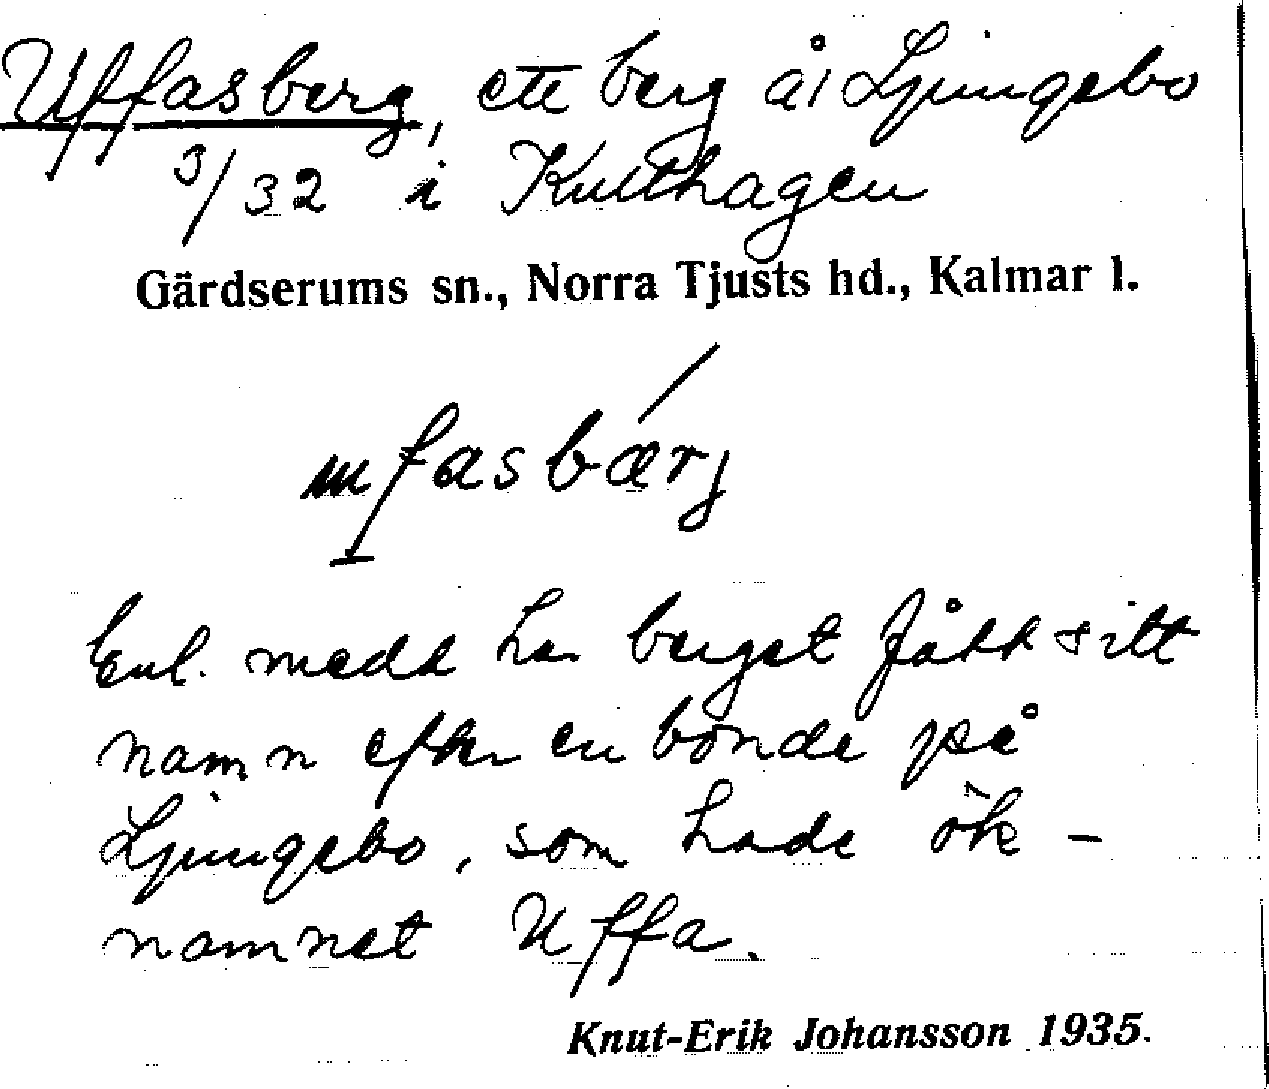 Uffasberg, ett berg å Ljungsbo
3/32 i Kulthagen
Gärdserums sn., Norra Tjusts hd., Kalmar l.
fasbærj
Enl. medd har berget fått sitt
namn efter en bonde på
Ljungsbo, som hade ök-
namnet Uffa.
Knut-Erik Johansson 1935.